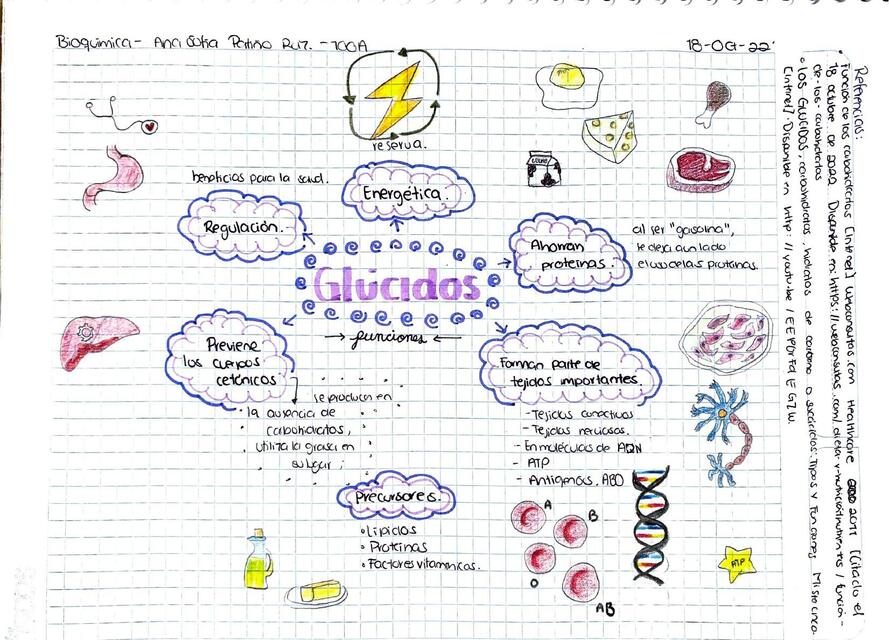 Bioquímica - Ana Sofia Patiño Ruiz. - 100A
18-Oct-22'
reserva.
Energética.
beneficios para la salud.
Regulación.
Ahorran
proteínas.
al ser "gasolina",
le deja a un lado
el uso de las proteínas.
Glúcidos
→ funciones ←
Previene
los cuerpos
cetónicos
se producen en
la ausencia de
carbohidratos,
utiliza la grasa en
su lugar;
Forman parte de
tejidos importantes.
- Tejidos conectivos
- Tejidos nerviosos.
- En moléculas de ADN
- ATP
- Antígenos. ABO
Precursores.
• Lípidos
• Proteínas
• Factores vitamínicos.
A
B
O
AB
ATP
Referencias:
• Función de los carbohidratos [Internet] Webconsultas.com Healthcare 2011 [Citado el
18 octubre de 2022 Disponible en: https://webconsultas.com/dieta-y-nutricion/nutrientes/funcion-
de-los-carbohidratos
• Los GLÚCIDOS, carbohidratos, hidratos de carbono o sacáridos: Tipos y Funciones
[Internet]. Disponible en http://youtu.be/